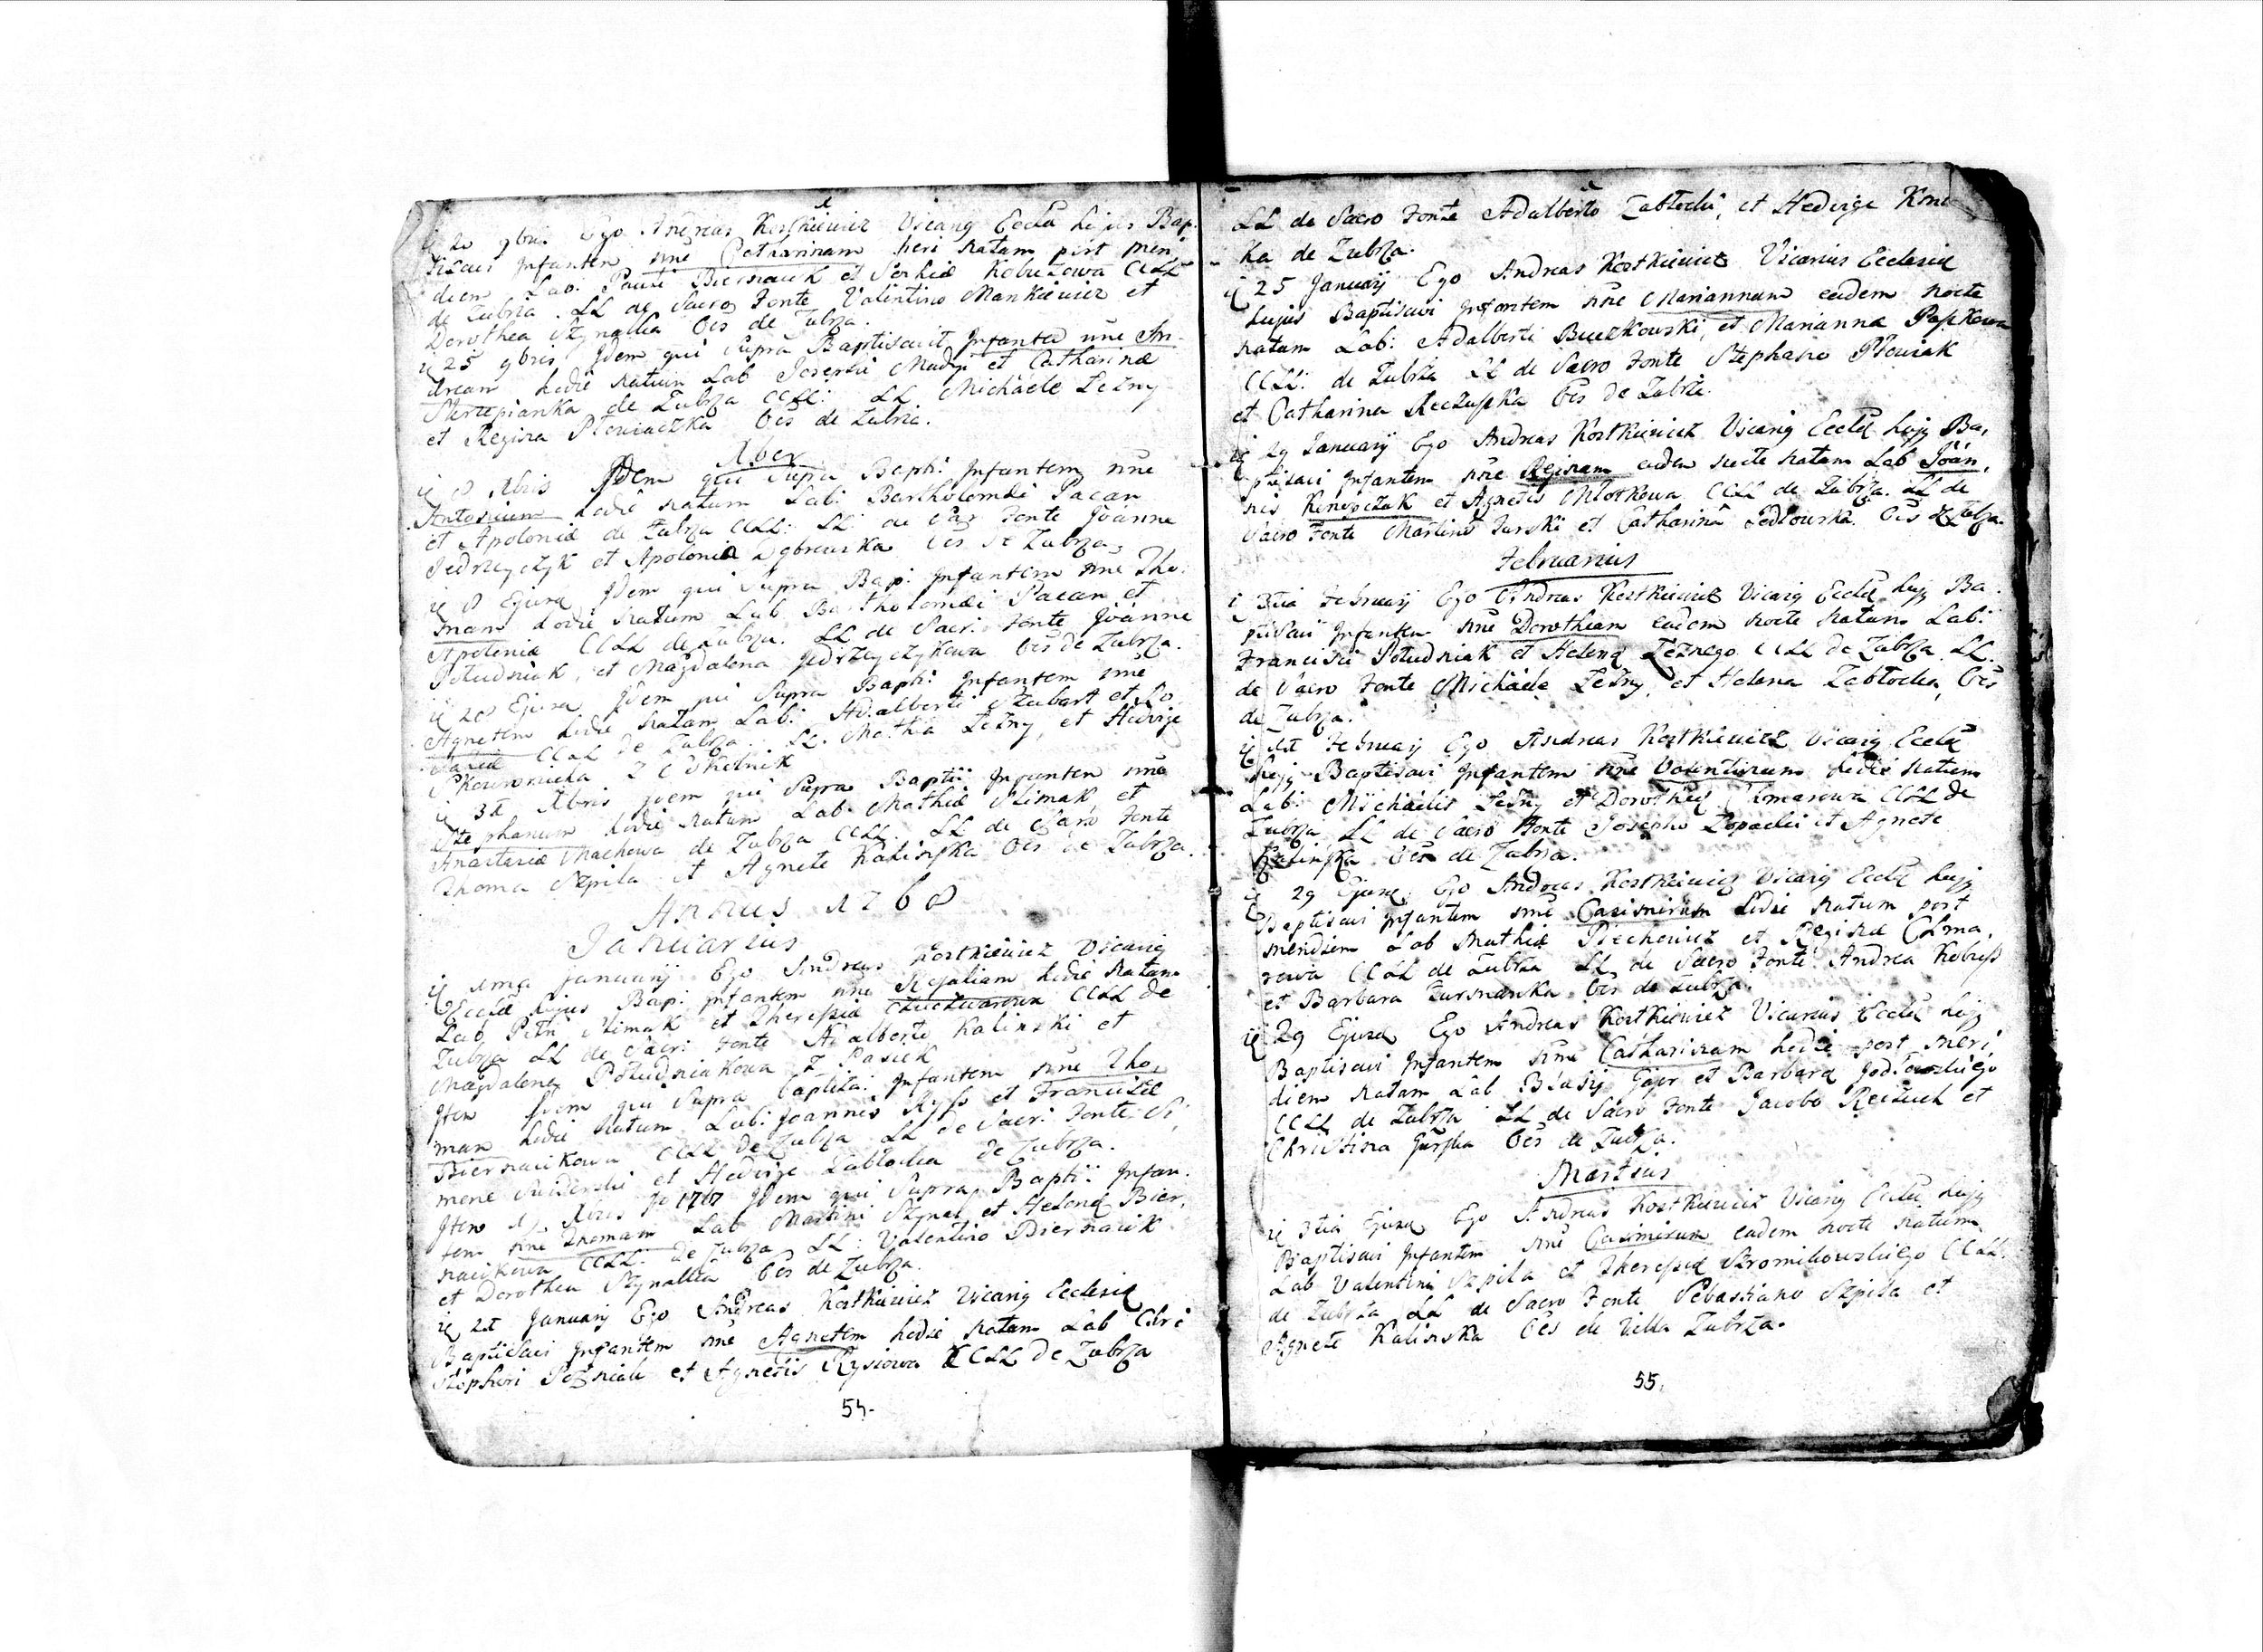 20 9bris Ego Andreas Kostkiewicz Vicarig Eccla hujus Bap
tisavi Infantem nne Catharinam heri natam post meri
diem Lab: Pauli Biernacik et Sophiæ Kobuzowa CCLL
de Zubrza. LL de Sacro Fonte Valentino Mankiewicz et
Dorothea Szynalka Oes de Zubrza.
25 9bris Idem qui Supra Baptisavit Infantem nne An
dream hodie natum Lab Josephi Madej et Catharinæ
de Zubrza CCLL: LL Michaele Leżny
et Regina Płowiaczka Oes de Zubrza.
Xber
8 Xbris Idem qui Supra Bapti: Infantem nne
Antonium hodie natum Lab: Bartholomæi Pacan
et Apoloniæ de Zubrza CCLL: LL de Sac Fonte Joanne
Jedrzeyczyk et Apolonia Dąbrowska Oes de Zubrza,
8 Ejusq Idem qui Supra Bap: Infantem nne Tho
mam hodie natum Lab Bartholomæi Pacan et
Apoloniæ CCLL de Zubrza. LL de Sacr: Fonte Joanne
Południak, et Magdalena Jedrzeyczykowa Oes de Zubrza.
28 Ejusq Idem qui Supra Bapti: Infantem nne
Agnetem hodie natam Lab: Adalberti Szubart et
CCLL de Zubrza. LL. Mathia Leżny, et Hedvige
31 Xbris Idem qui Supra Baptii Infantem nne
Stephanum hodie natum Lab Mathiæ Klimak et
Anastasiæ Machowa de Zubrza CCLL. LL de Sacro Fonte
Thoma Szpila et Agnete Kalinska Oes de Zubrza.
Annus 1768
Januarius
1ma Januarij Ego Andreas Kostkiewicz Vicarig
Eccla hujus Bap: Infantem nne Rosaliam hodie natam
Lab Petri Klimak et Theresiæ CCLL de
Zubrza LL de Sacr: Fonte Adalberto Kalinski et
Magdalena Południakowa z Pasiek
Item Idem qui Supra Baptisa: Infantem nne Tho,
mam hodie natum Lab: Joannis Ryss et Franciscæ
Biernacikowa CCLL de Zubrza LL de Sacr: Fonte Si,
mone et Hedvige Zabłocka de Zubrza.
Item Idem qui Supra Bapti: Infan
tem nne Thomam Lab Martini Szynal et Helenæ Bier,
nacikowa CCLL. de Zubrza LL: Valentino Biernacik
et Dorothea Szynalka Oes de Zubrza.
21 Januarij Ego Andreas Kostkiewicz Vicarig Ecclesiæ
Baptisavi Infantem nne Agnetem hodie natam Lab Chri
stophori Poźniak et Agnetis Rysiowa CCLL de Zubrza
54.
LL de Sacro Fonte Adalberto Zabłocki, et Hedvige
ka de Zubrza.
25 Januarij Ego Andreas Kostkiewicz Vicarius Ecclesiæ
hujus Baptisavi Infantem nne Mariannam eadem nocte
natam Lab: Adalberti Buczkowski, et Marianna Papkowa
CCLL: de Zubrza LL de Sacro Fonte Stephano Płowiak
et Catharina Reczuszka Oes de Zubrza.
29 Januarij Ego Andreas Kostkiewicz Vicarig Eccla hujg Ba,
ptisavi Infantem nne Reginam eadem nocte natam Lab Joan,
nis et Agnetis Młotkowa CCLL de Zubrza. LL de
Sacro Fonte Martino Turski et Catharina Sedłowska. Oes de Zubrza.
Februarius
3tia Februarij Ego Andreas Kostkiewicz Vicarig Eccla hujg Ba
ptisavi Infantem nne Dorotheam eadem nocte natam Lab:
Francisci Południak et Helenæ Leżnego CCLL de Zubrza. LL.
de Sacro Fonte Michaele Leżny, et Helena Zabłocka, Oes
de Zubrza.
Februarij Ego Andreas Kostkiewicz Vicarig Eccla
hujg Baptisavi Infantem nne Valentinum hodie natum
Lab: Michaelis Leżny et Dorotheæ CCLL de
Zubrza LL de Sacro Fonte Josepho Łopacki et Agnete
Kalinska Oes de Zubrza.
29 Ejusq Ego Andreas Kostkiewicz Vicarig Eccla hujg
Baptisavi Infantem nne Casimirum hodie natum post
meridiem Lab Mathiæ Piechowicz et Reginæ
CCLL de Zubrza LL de Sacro Fonte Andrea
et Barbara Oes de Zubrza.
29 Ejusq Ego Andreas Kostkiewicz Vicarius Eccla hujg
Baptisavi Infantem nne Catharinam hodie post meri,
diem natam Lab Blasij et Barbaræ
CCLL de Zubrza LL de Sacro Fonte Jacobo Reczuch et
Christina Oes de Zubrza.
Martius
3tia Ejusq Ego Andreas Kostkiewicz Vicarig Eccla hujg
Baptisavi Infantem nne Casimirum eadem nocte natum
Lab Valentini Szpila et Theresiæ Skromikowskiego CCLL.
de Zubrza LL de Sacro Fonte Sebastiano Szpila et
Agnete Kalinska Oes de Villa Zubrza.
55.